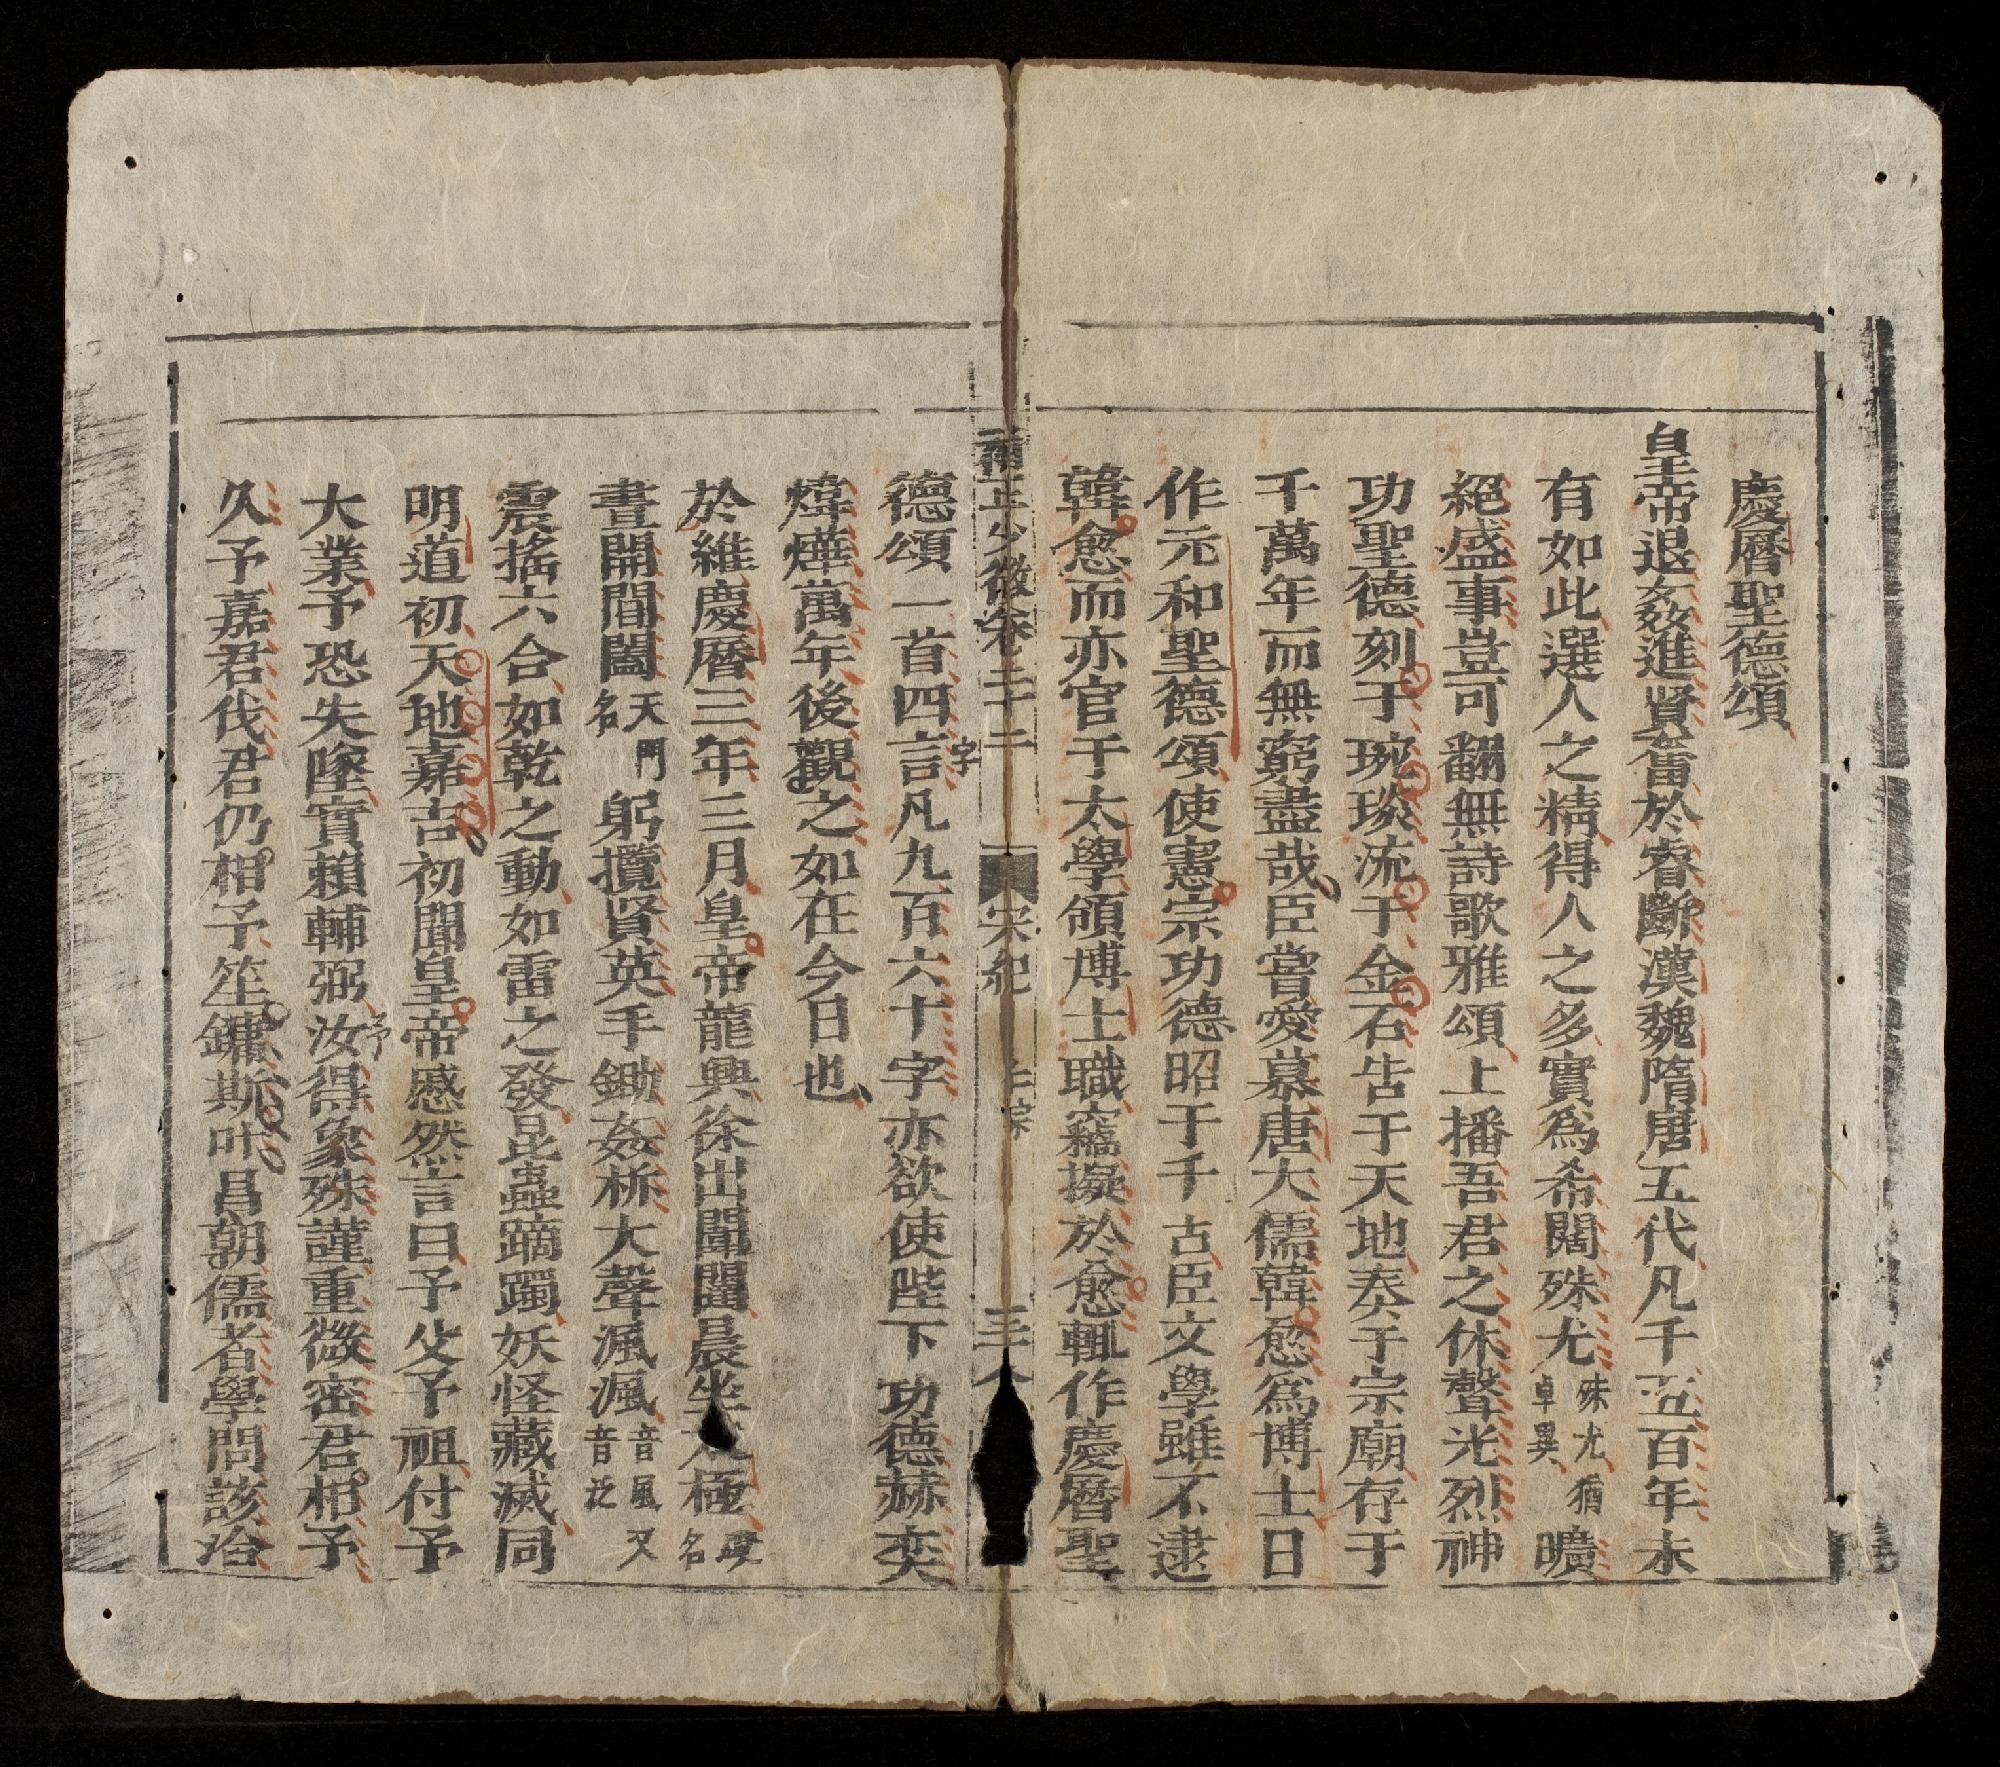 慶曆聖德頌
皇帝退姦進賢奮於睿斷漢魏隋唐五代凡千五百年未
有如此選人之精得人之多實爲希闊殊尤殊尤猶卓異曠
絕盛事豈可翻無詩歌雅頌上播吾君之休聲光烈神
功聖德刻于琬琰流于金石告于天地奏于宗廟存于
千萬年而無窮盡哉臣嘗愛慕唐大儒韓愈爲博士日
作元和聖德頌使憲宗功德昭于千古臣文學雖不逮
韓愈而亦官于太學領博士職竊擬於愈輒作慶曆聖
少微卷二十二 宋紀 仁宗 三十八
德頌一首四言字凡九百六十字亦欲使陛下功德赫奕
煒燁萬年後觀之如在今日也
於維慶曆三年三月皇帝龍興徐出闈闥晨坐太極殿名
晝開閶闔天門名躬攬賢英手鋤姦枿大聲渢渢音風又音泛
震搖六合如乾之動如雷之發昆蟲蹢躅妖怪藏滅同
明道初天地嘉吉初聞皇帝慼然言曰予父予祖付予
大業予恐失墜實賴輔弼汝得象殊謹重微密君相予
予
久予嘉君伐君仍相予笙鏞斯叶昌朝儒者學問該洽